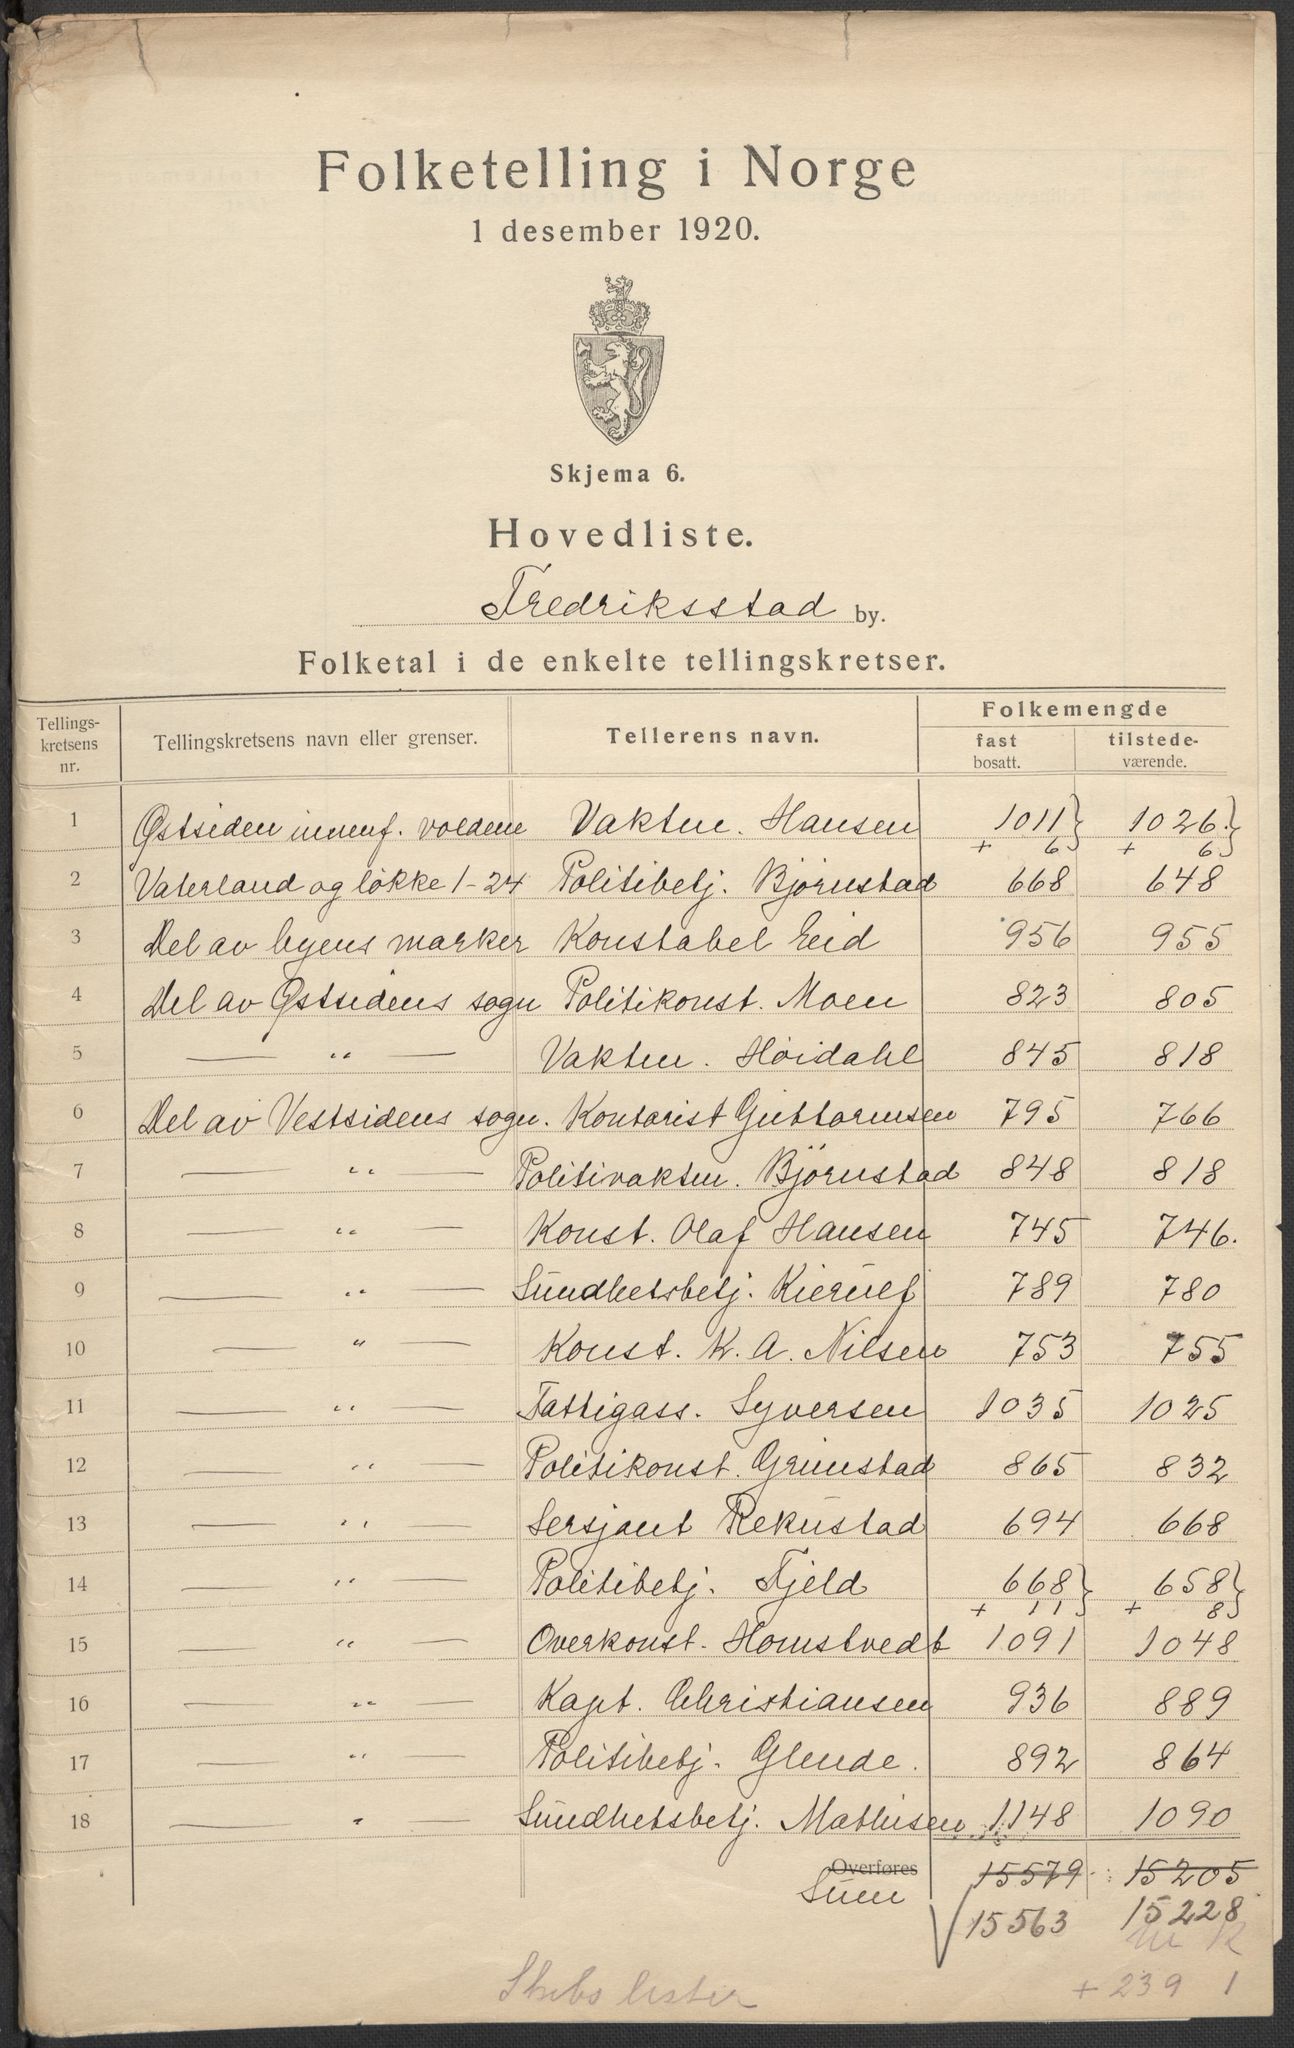 Folketelling i Norge
1 desember 1920.
Skjema 6.
Hovedliste.
Fredriksstad by.
Folketal i de enkelte tellingskretser.
Tellings-kretsens nr. Tellingskretsens navn eller grenser. Tellerens navn. Folkemengde fast bosatt. tilstede-værende.
1 Østsiden innenf. voldene Vaktm. Hansen 1011 } 1026. }
+ 6 + 6
2 Vaterland og løkke 1-24 Politibetj. Björnstad 668 648
3 Del av byens marker Konstabel Eid 956 955
4 Del av Østsidens sogn Politikonst. Moen 823 805
5 — " — Vaktm. Höidahl 845 818
6 Del av Vestsidens sogn. Kontorist Guttormsen 795 766
7 — " — Politivaktm. Björnstad 848 818
8 — " — Konst. Olaf Hansen 745 746.
9 — " — Sundhetsbetj. Kierulf 789 780
10 — " — Konst. K. A. Nilsen 753 755
11 — " — Fattigass. Syversen 1035 1025
12 — " — Politikonst. Grimstad 865 832
13 — " — Sersjant Rekustad 694 668
14 — " — Politibetj. Fjeld 668 } 658 }
+ 11 + 8
15 — " — Overkonst. Homstvedt 1091 1048
16 — " — Kapt. Christiansen 936 889
17 — " — Politibetj. Glende. 892 864
18 — " — Sundhetsbetj. Mathisen 1148 1090
Overføres 15579 15205
Sum 15563 15228
m k
Skibslister + 239 1